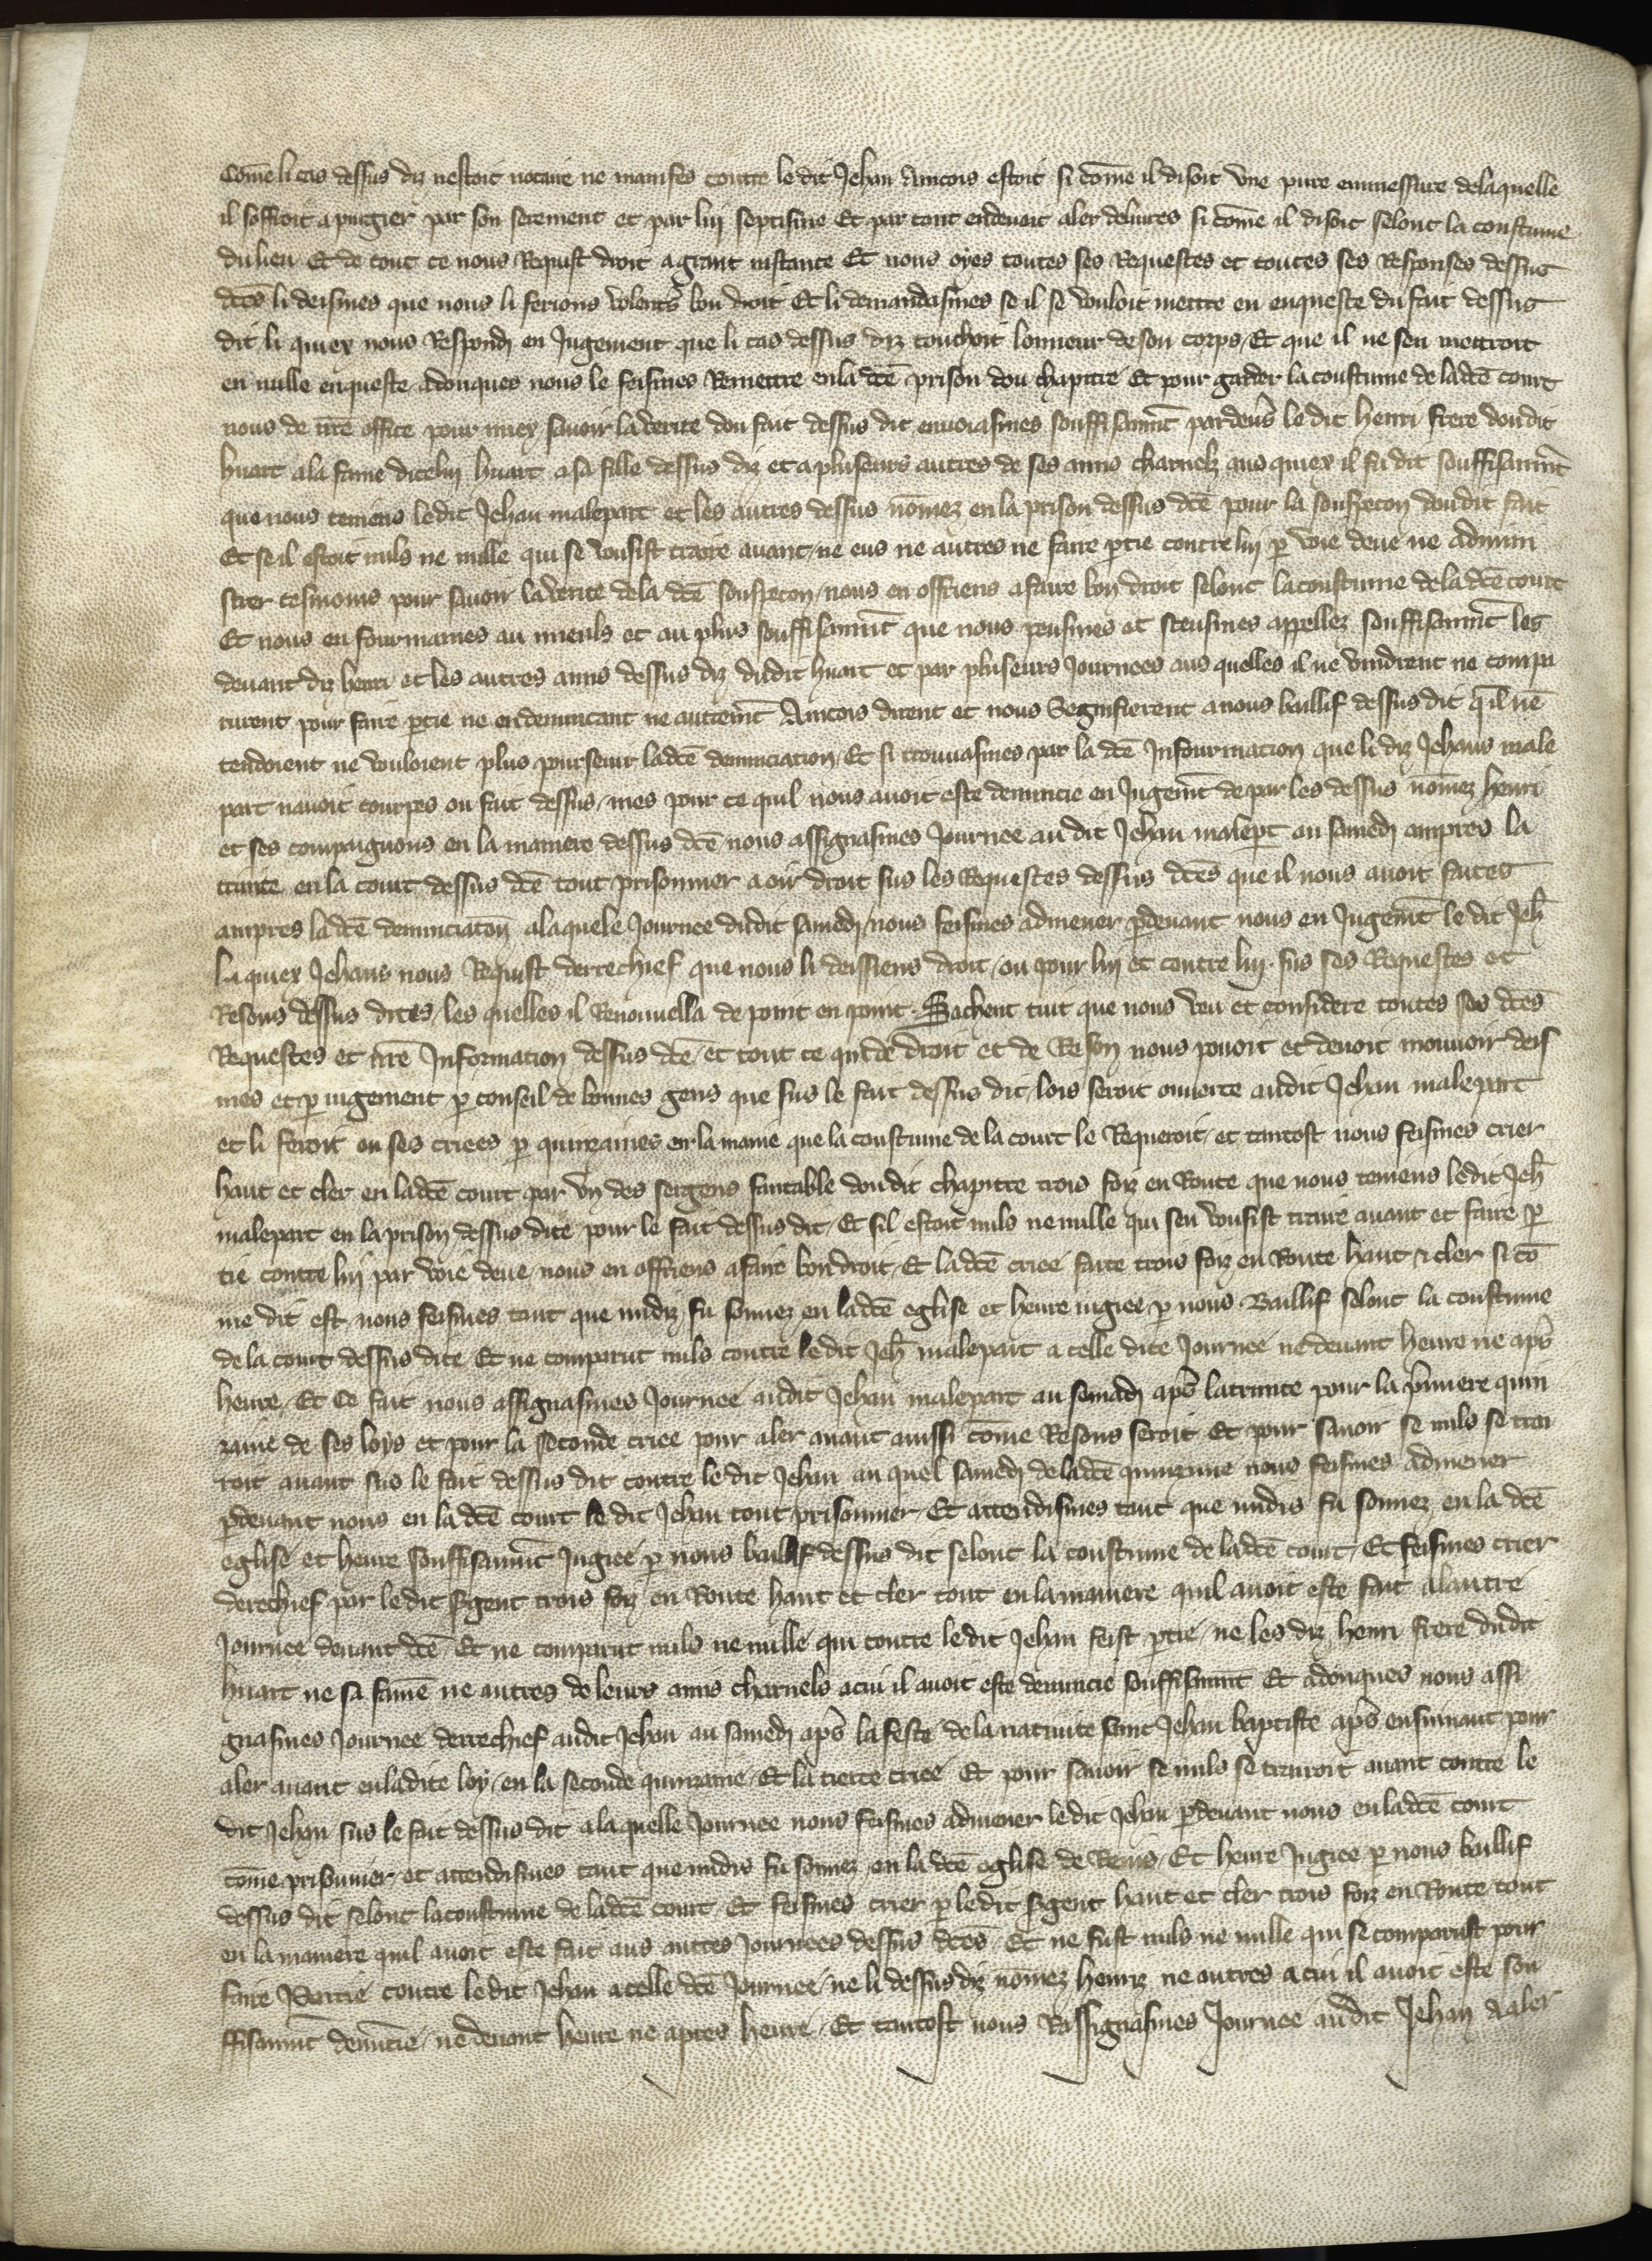 Cōme li cas dessus diz nestoit notaire ne manifes contre le dit Jehan Aincois estoit si cōme il disoit vne pure enmessure delaquelle
il soffroit a purgier par son serement et par lui septisme Et par tant endeuoit aler deliures si cōme il disoit selonc la coustume
du lieu Et de tout ce nous Requist droit a grant instance Et nous oyes toutes ses Requestes et toutes ses Responses dessus
dc̄es li deismes que nous li ferions volentˢ bon droit Et li demandasmes se il se vouloit mettre en enqueste du fait dessus
dit / li quiex nous Respondi en Jugement que li cas dessus diz touchoit lonneur de son corps / Et que il ne sen mettroit
en nulle enqueste adonques nous le feismes Remettre en la dc̄e prison dou chapitre Et pour garder la coustume de la dc̄e court
nous de nr̄e office pour miex sauoir la verite dou fait dessus dit enuoiasmes souffisanmt̄ par deuˢ le dit henri frere dou dit
huart a la fame dicelui huart a sa fille dessus diz et a pluseurs autres de ses amis charnelz aus quiex il fu dit souffisanmt̄
que nous teniens ledit Jehan malepart et les autres dessus nōmez en la prison dessus dc̄e pour la souspecon dou dit fait
Et se il estoit nuls ne nulle qui se vousist traire auant / ne eus ne autres ne faire p̱tie contre lui p̱ voie deue ne admini
strer tesmoins pour sauoir la verite de la dc̄e souspecon / nous en offriens a faire bon droit selonc la coustume de la dc̄e court
Et nous en fourmames au mieuls et au plus souffisanmt̄ que nous peusmes et sceusmes appellez souffisanmt̄ les
deuant diz henri et les autres amis dessus diz dudit huart et par pluseurs Journees aus quelles il ne vindrent ne compa
rurent pour faire p̱tie ne en denuncant ne autremt̄ Aincois dirent et nous Segnifierent a nous baillif dessus dit qͥl nē
tendoient ne vouloient plus poursuiur ladc̄e denunciation / Et si trouuasmes par la dc̄e Infourmation que li diz Jehans male
part nauoit courpes ou fait dessus / mes pour ce quil nous auoit este denuncie en Jugemt̄ de par les dessus nōmez henri
et ses compaignons en la maniere dessus dc̄e nous assignasmes Journee au dit Jehan malep̱t au samedi anpres la
trinite en la court dessus dc̄e tout prisonnier a oir droit sus les Requestes dessus dc̄es que il nous auoit faites
anpres la dc̄e denunciatōn a laquele Journee dudit samedi / nous feismes admener p̱deuant nous en Jugemt̄ le dit Jeh̄
la quiex Jehans nous Requist derrechief que nous li deissiens droit / ou pour lui et contre lui. sus ses Requestes et
Resons dessus dites / les quelles il Renouuella de point en point. Sachent tuit que nous veu et considere toutes ses dc̄es
Requestes et nr̄e Information dessus dc̄e / et tout ce qui de droit et de Reson nous pouoit et deuoit mouuoir deis
mes et p̱ iugement p̱ conseil de bonnes gens que sus le fait dessus dit / lois seroit ouuerte audit Jehan malepart
et li feroit on ses criees p̱ quinzaines en la manie que la coustume de la court le Requeroit / et tantost nous feismes crier
haut et cler en ladc̄e court par vn des sergens fautable dou dit chapitre trois foiz en Route que nous teniens ledit Jeh̄
malepart en la prison dessus dite pour le fait dessus dit / Et sil estoit nuls ne nulle qui sen vousist traire auant et faire p̱
tie contre lui par voie deue / nous en offriens a faire bon droit / Et ladc̄e criee faite trois foiz en Route haut & cler si cō
me dit est nous feismes tant que midiz fu sonnez en ladc̄e eglise et heure iugiee p̱ nous Baillif selonc la coustume
de la court dessus dite Et ne comparut nuls contre le dit Jeh̄ malepart a celle dite Journee ne deuant heure ne apˢ
heure / Et ce fait nous assignasmes Journee audit Jehan malepart au semadi apˢ la trinite pour la pͥmiere quin
zaine de ses loys et pour la seconde criee pour aler auant aussi cōme Resons seroit Et pour sauoir se nuls se trai
roit auant sus le fait dessus dit contre le dit Jehan au quel samedi de ladc̄e quinzaine nous feismes admener
p̱deuant nous en la dc̄e court le dit Jehan tout prisonnier Et attendismes tant que midis fu sonnez en la dc̄e
eglise et heure souffisanmt̄ Jugiee p̱ nous baillif dessus dit selonc la coustume de ladc̄e court / Et feismes crier
derechief par ledit sͬgent trois foiz en Route haut et cler tout en la maniere quil auoit este fait alautre
Journee deuant dc̄e / Et ne comparut nuls ne nulle qui contre le dit Jehan feist p̱tie / ne les diz henri frere dudit
huart ne sa famē ne autres de leurs amis charnels a cui il auoit este denuncie souffisanmt̄ Et adonques nous assi
gnasmes Journee derrechief audit Jehan au samedi apˢ la feste de la natiuite saint Jehan baptiste apˢ ensiuant pour
aler auant en ladite loy / en la seconde quinzaine / Et la tierce criee Et pour sauoir se nuls se trairoit auant contre le
dit Jehan sus le fait dessus dit a laquelle Journee nous feismes admener ledit Jehan p̱deuant nous en ladc̄e court
cōme prisonnier / et attendismes tant que midis fu sonnez en la dc̄e eglise de Reins / Et heure Jugiee p̱ nous baillif
dessus dit selonc la coustume de ladc̄e court / Et feismes crier p̱ ledit sͬgent haut et cler trois foiz en Route tout
en la maniere quil auoit este fait aus autres Journees dessus dc̄es / Et ne fust nuls ne nulle qui se comparust pour
faire Partie contre ledit Jehan a celle dc̄e Journee / ne li dessus diz nōmez henriz ne autres a cui il auoit este sou
ffisanmt̄ denūcie / ne deuant heure ne apres heure / Et tantost nous Rassignasmes Journee audit Jehan a aler